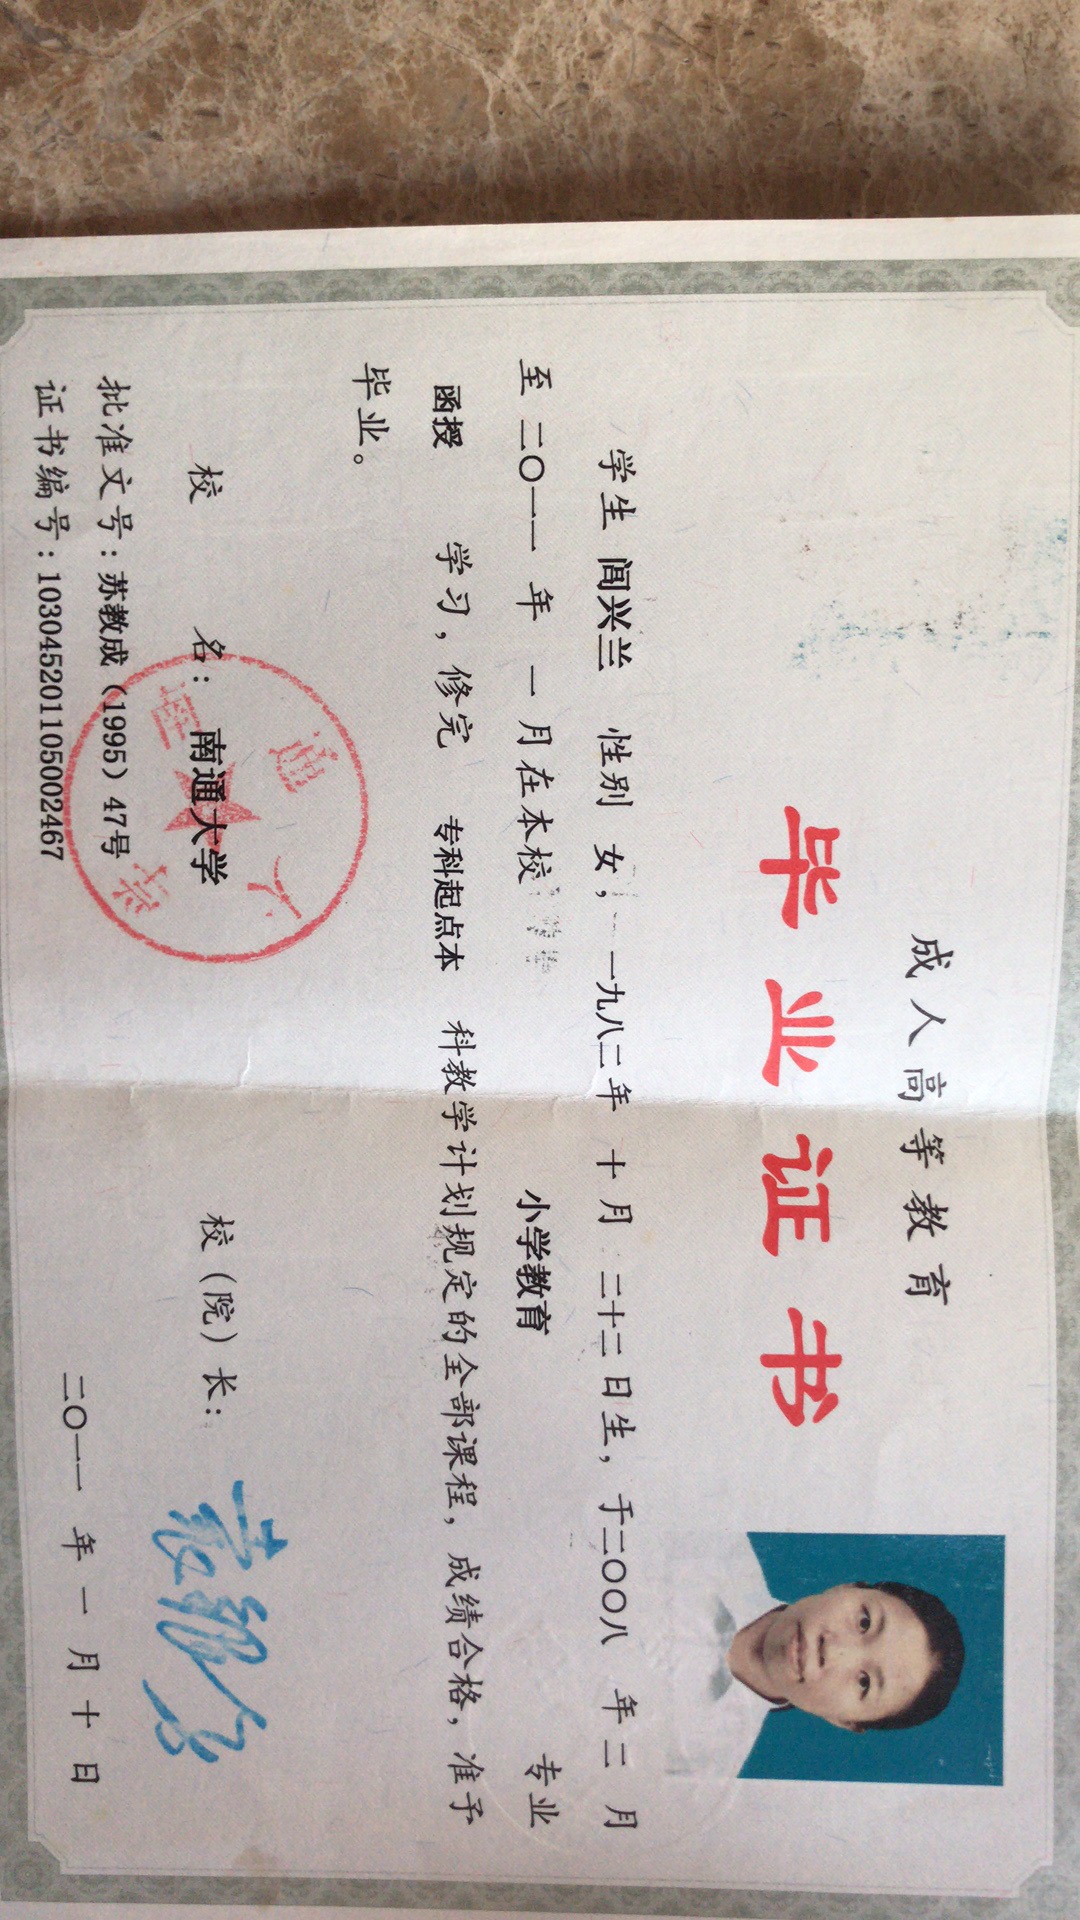 成人高等教育
毕业证书
学生 闾兴兰 性别 女， 一九八二年 十月 二十二日生，于二〇〇八 年 二 月
至 二〇一一 年 一 月在本校 小学教育 专业
函授 学习，修完 专科起点本 科教学计划规定的全部课程，成绩合格，准予
毕业。
校 名： 南通大学 校（院）长：
批准文号：苏教成（1995）47号
证书编号：103045201105002467 二〇一一 年 一 月 十 日